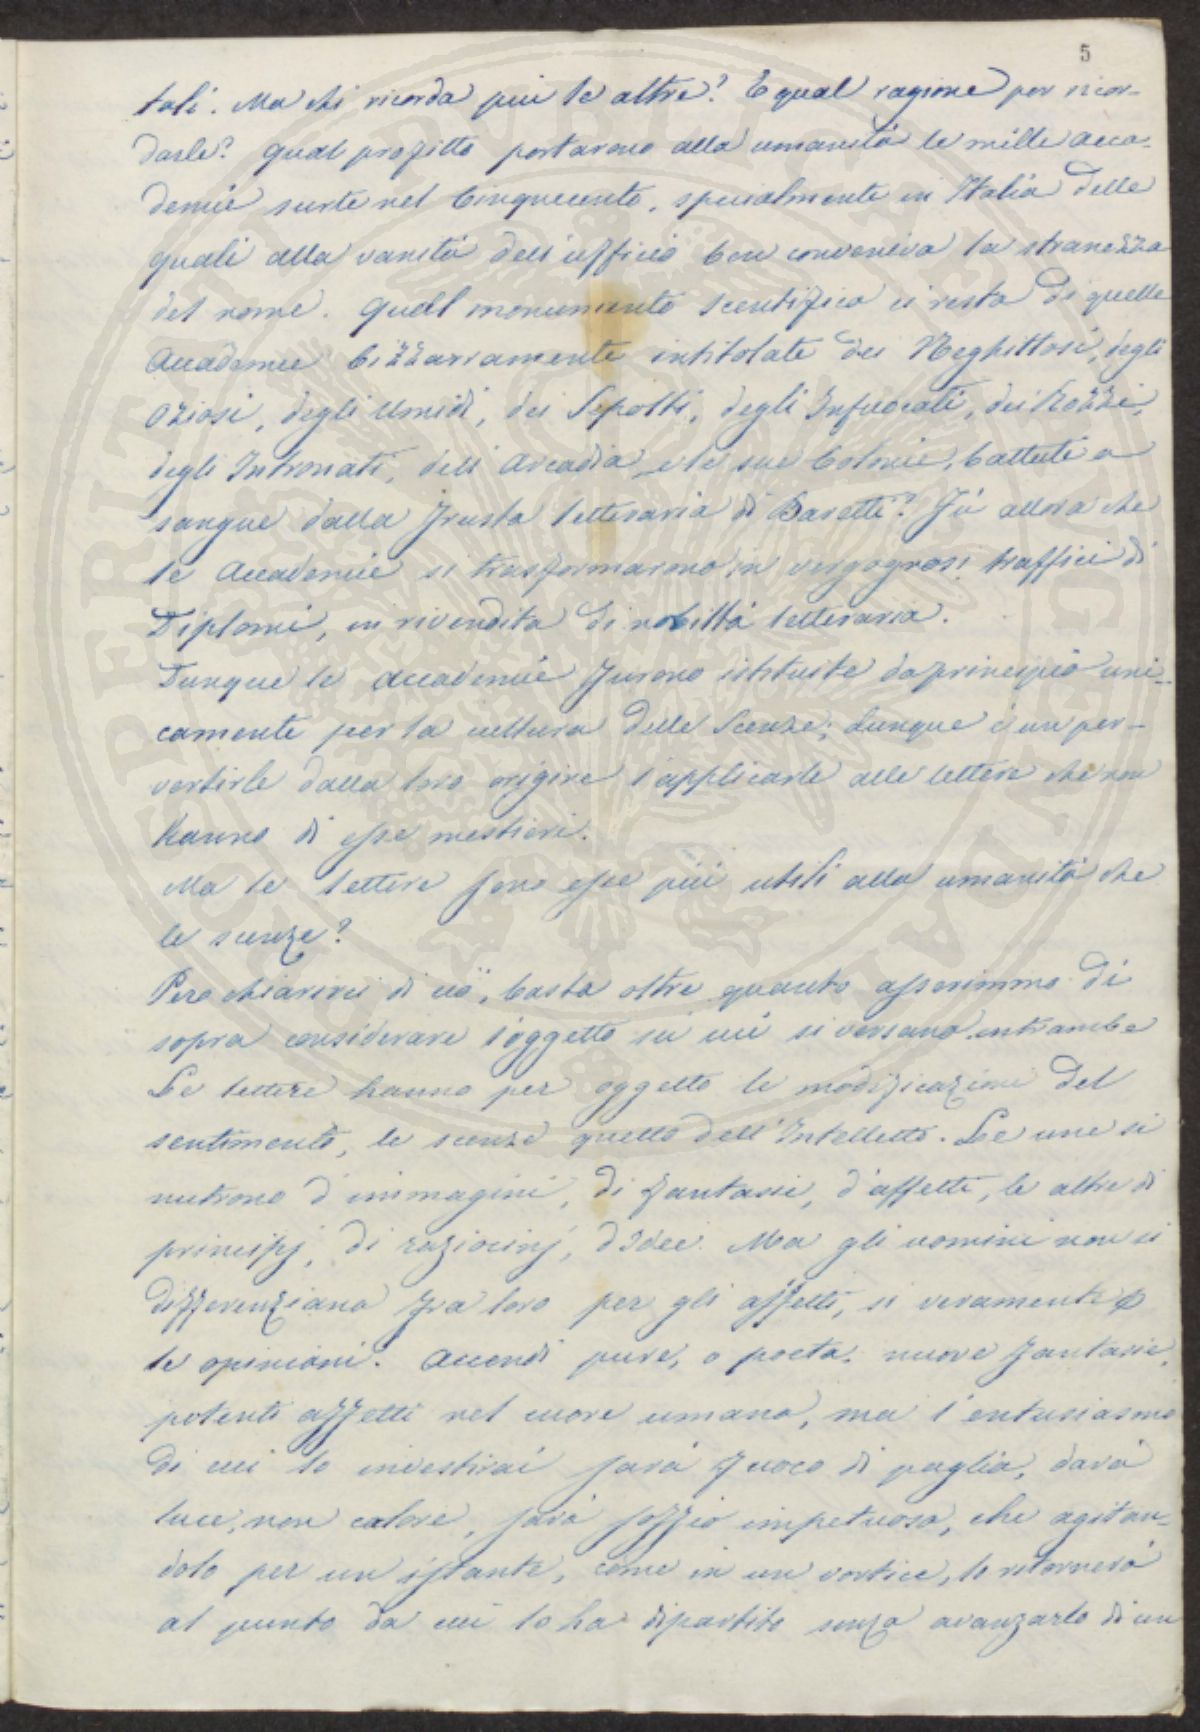 5
tali. Ma chi ricorda più le altre? E qual ragione per ricor-
darle? Qual profitto portarono alla umanità le mille acca-
demie surte nel Cinquecento, specialmente in Italia delle
quali alla vanità dell'ufficio ben conveniva la stranezza
del nome. Qual monumento scentifico ci resta di quelle
Accademie bizzarriamente intitolate dei Neghittosi, degli
Oziosi, degli Umidi, dei Sepolti, degli Infuocati, dei Rozzi,
degli Intronati, dell'Arcadia e le sue Colonie, battuti a
sangue dalla frusta letteraria di Baretti? Fù allora che
le Accademie si trasformarono in vergognosi traffici di
Diplomi, in rivendita di nobiltà letteraria.
Dunque le Accademie furono istituite da principio uni-
camente per la cultura delle Scenze; dunque è un per-
vertirle dalla loro origine l'applicarle alle lettere che non
hanno di esse mestieri.
Ma le lettere sono esse più utili alla umanità che
le scenze?
Per chiarirci di ciò, basta oltre quanto asserimmo di
sopra considerare l'oggetto su cui si versano entrambe
Le lettere hanno per oggetto le modificazioni del
sentimento, le scenze quello dell'Intelletto. Le une si
nutrono d'immagini, di fantasie, d'affetti, le altre di
principj, di raziocinj, d'Idee. Ma gli uomini non si
differenziano fra loro per gli affetti, si veramente p
le opinioni. Accendi pure, o poeta, nuove fantasie,
potenti affetti nel cuore umano, ma l'entusiasmo
di cui lo investirai sarà fuoco di paglia, darà
luce, non calore, sarà soffio impetuoso, che agitan-
dolo per un istante, come in un vortice, lo ritornerà
al punto da cui lo ha dipartito senza avanzarlo di un
PROSPERITATI PUBLICAE AUGENDAE